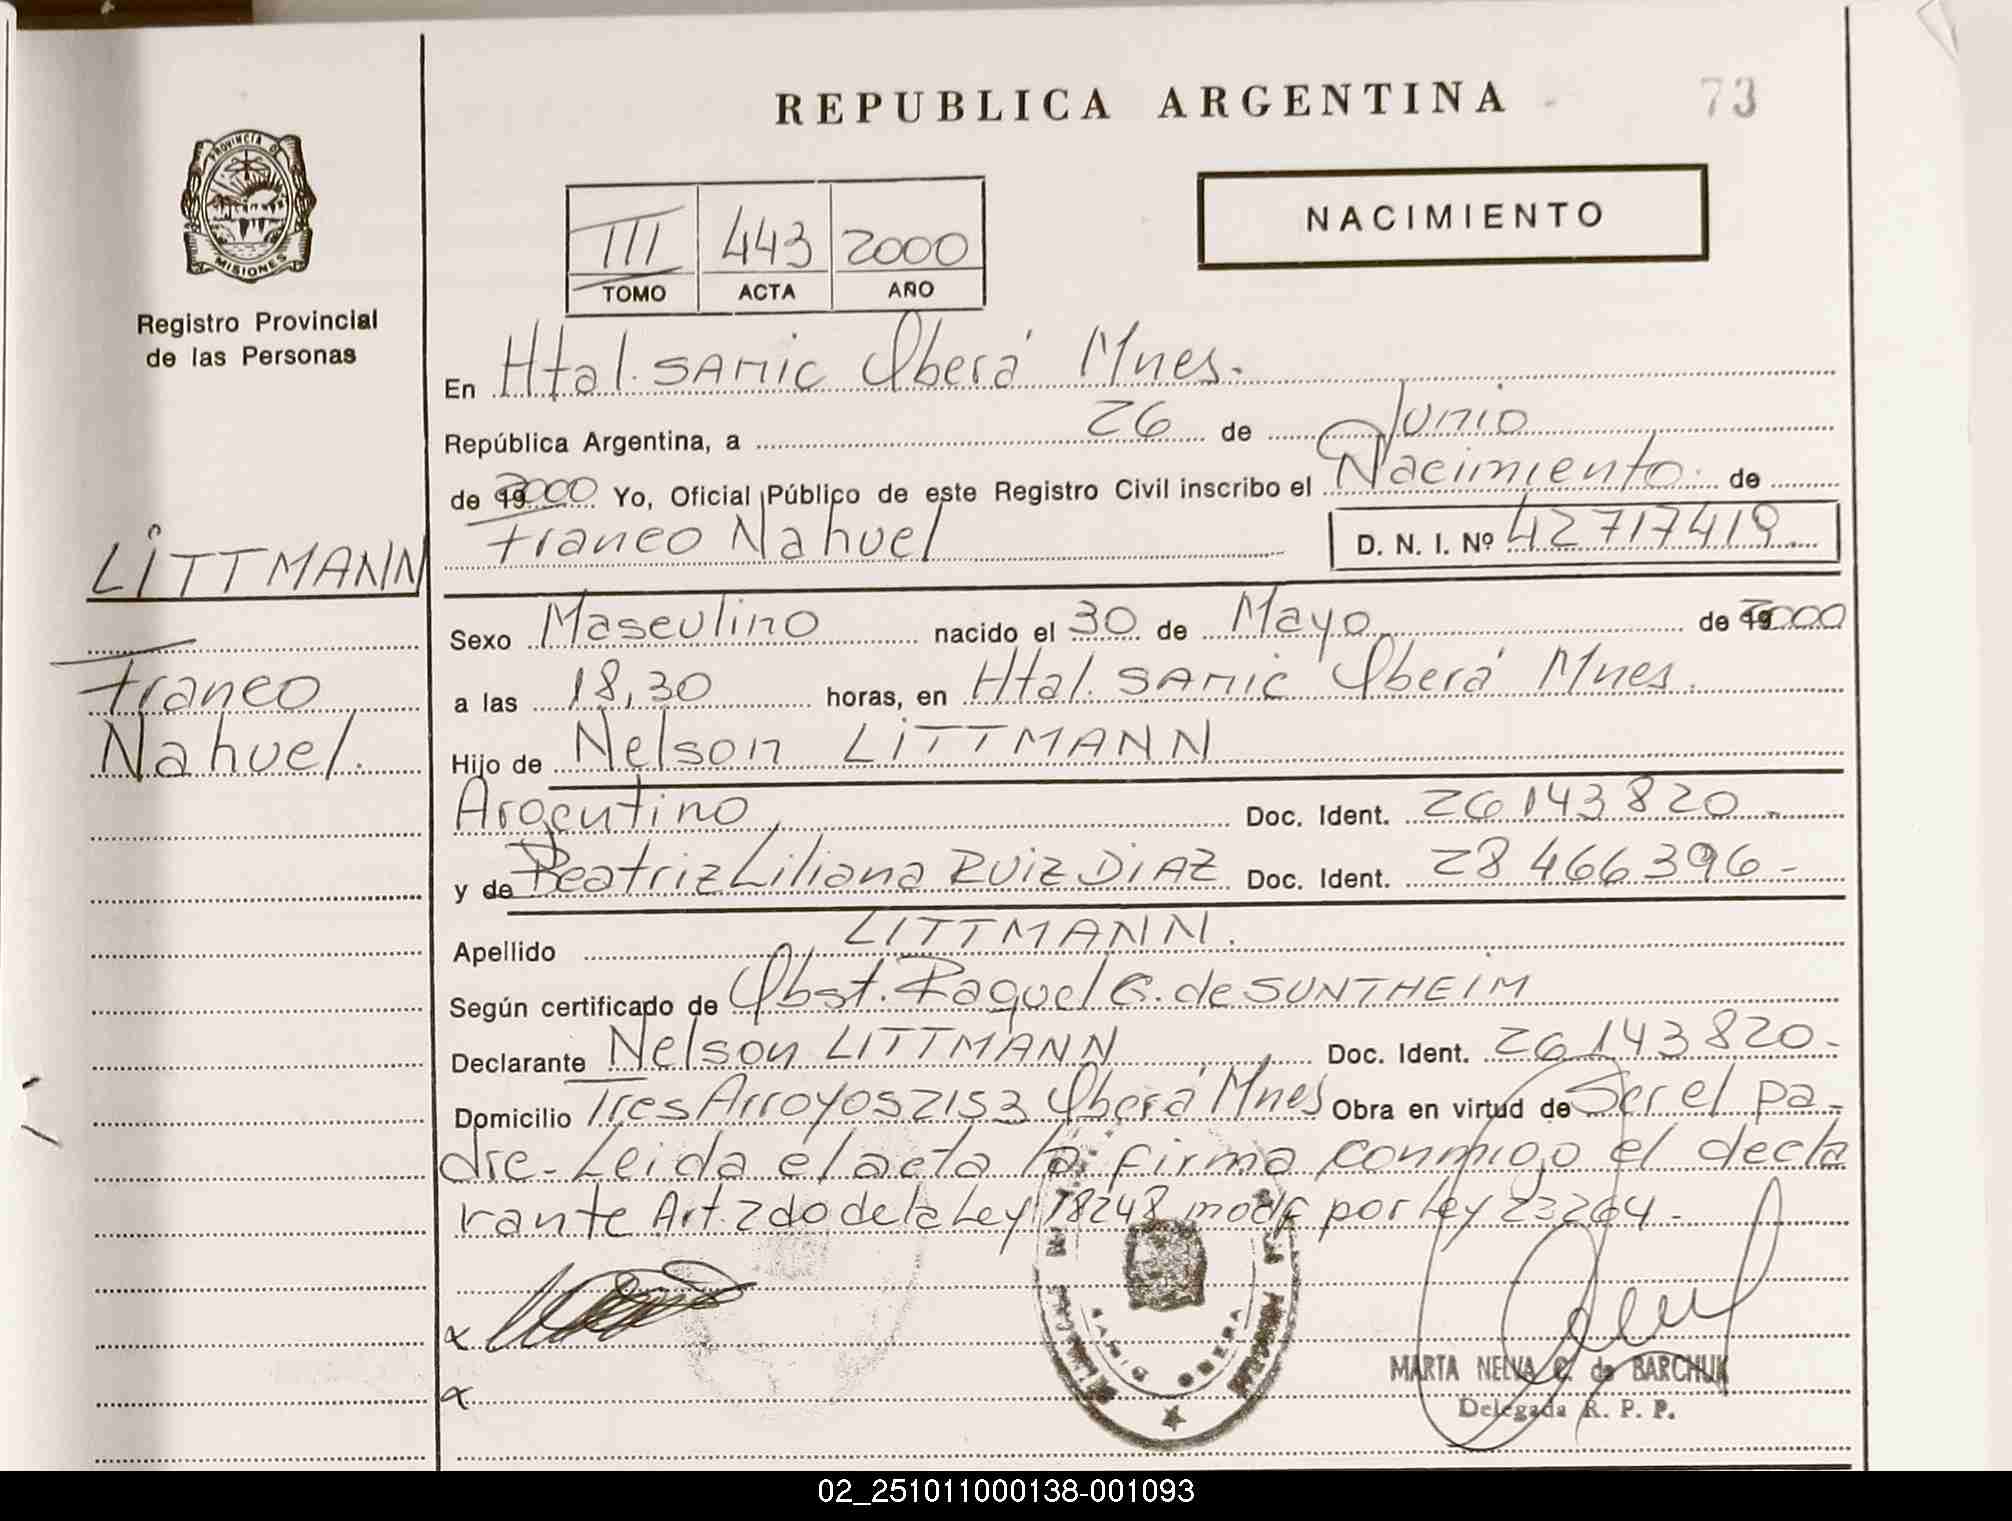 REPUBLICA ARGENTINA
73
PROVINCIA DE
MISIONES
Registro Provincial
de las Personas
NACIMIENTO
III 443 2000
TOMO ACTA AÑO
En Htal. SAMIC Oberá Mnes.
República Argentina, a 26 de Junio
de 19 2000 Yo, Oficial Público de este Registro Civil inscribo el Nacimiento de
Franco Nahuel D. N. I. Nº 42717419
LiTTMANN
Franco
Nahuel.
Sexo Masculino nacido el 30 de Mayo de 19 2000
a las 18,30 horas, en Htal. SAMIC Oberá Mnes.
Hijo de Nelson LiTTMANN
Argentino Doc. Ident. 26143820
y de Beatriz Liliana RUiZ DiAZ Doc. Ident. 28466396-
Apellido LITTMANN.
Según certificado de Obst. Raquel G. de SUNTHEIM
Declarante Nelson LITTMANN Doc. Ident. 26143820-
Domicilio Tres Arroyos 2153 Oberá Mnes Obra en virtud de Ser el pa-
dre- Leida el acta la firma conmigo el decla
rante Art. 2do de la Ley 18248 modf por Ley 23264-
SAMIC OBERA
MARTA NELVA C. de BARCHUK
Delegada R. P. P.
02_251011000138-001093